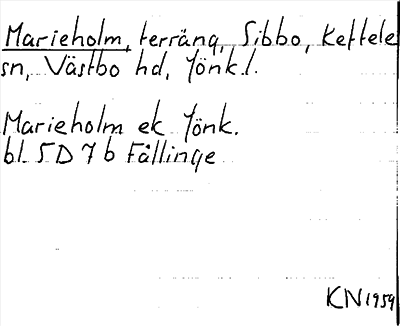 Marieholm, terräng, Sibbo, Kettele
sn, Västbo hd, Jönk.l.
Marieholm ek Jönk.
bl. 5D 7b Fållinge
KN 1959